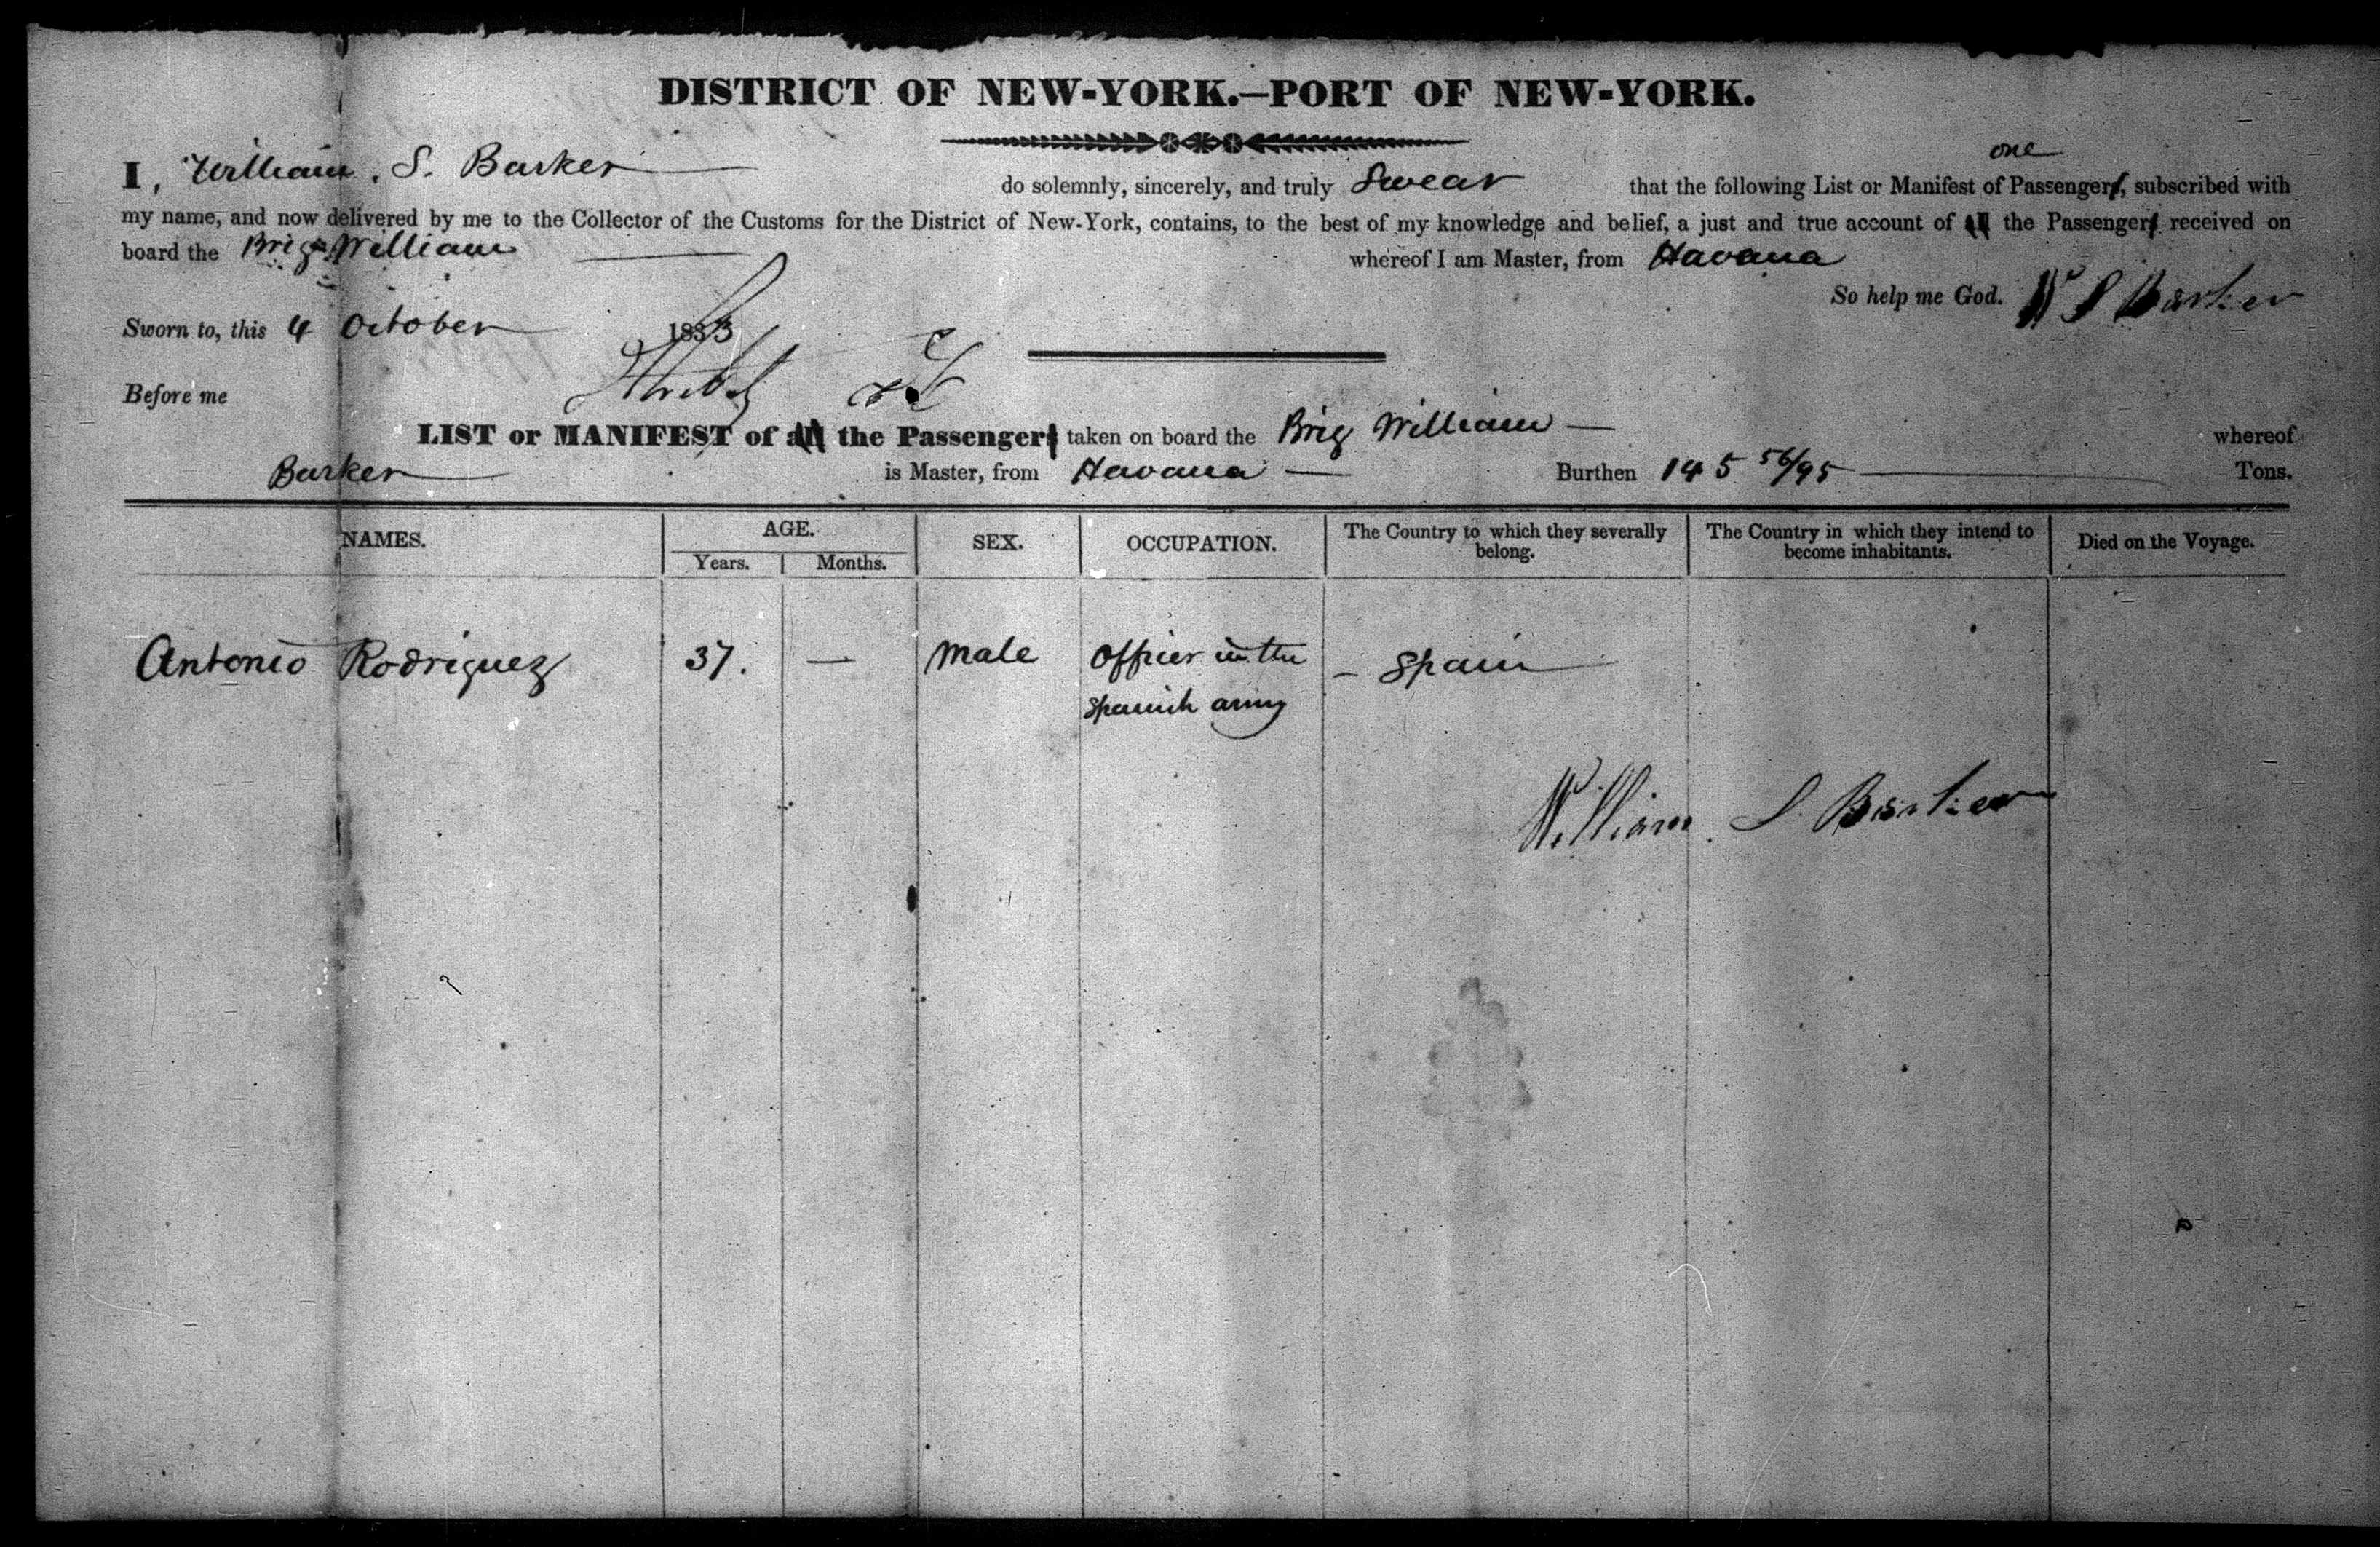 DISTRICT OF NEW-YORK.—PORT OF NEW-YORK.
one
I, William. S. Barker do solemnly, sincerely, and truly Swear that the following List or Manifest of Passenger, subscribed with
my name, and now delivered by me to the Collector of the Customs for the District of New-York, contains, to the best of my knowledge and belief, a just and true account of all the Passenger received on
board the Brig William whereof I am Master, from Havana
So help me God. W S Barker
Sworn to, this 4 October 1833
Before me
LIST or MANIFEST of all the Passenger taken on board the Brig William — whereof
Barker is Master, from Havana — Burthen 145 56/95 Tons.
NAMES. AGE. SEX. OCCUPATION. The Country to which they severally belong. The Country in which they intend to become inhabitants. Died on the Voyage.
Years. Months.
Antonio Rodriguez 37. — male officer in the – Spain
Spanish army
William. S. Barker